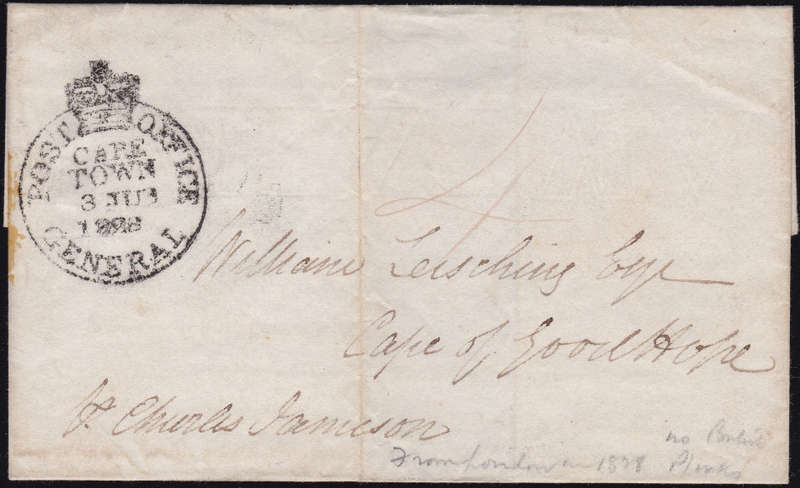 POST OFFICE
CAPE
TOWN
3 JU
1828
GENERAL
4
William Leisching Esqr
Cape of Good Hope
Charles Jameson
From London 1828
no